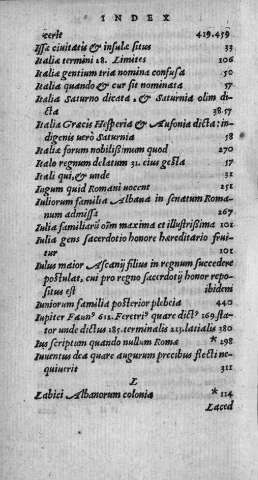 INDEX
icerit 419.439
Issæ ciuitatis & insulæ situs 33
Italiæ termini 28. Limites 106
Italiæ gentium tria nomina confusa 50
Italia quando & cur sit nominata 57
Italia Saturno dicata, & Saturnia olim di-
cta 38.57
Italia Græcis Hesperia & Ausonia dicta: in-
digenis uerò Saturnia 58
Italiæ forum nobilißimum quod 270
Italo regnum delatum 31. eius gesta 17
Itali qui, & unde 31
Iugum quid Romani uocent 251
Iuliorum familia Albana in senatum Roma-
num admissa 267
Iulia familiarũ oĩm maxima et illustrißima 101
Iulia gens sacerdotio honore hæreditario frui-
tur 101
Iulus maior Ascanij filius in regnum succedere
postulat, cui pro regno sacerdotij honor repo-
situs est ibidem
Iuniorum familia posterior plebeia 440
Iupiter Faunꝰ 612. Feretriꝰ quare dictꝰ 169. sta-
tor unde dictus 185. terminalis 213. latialis 380
Ius scriptum quando nullum Romæ * 298
Iuuentus dea quare augurum precibus flecti ne-
quiuerit 311
L
Labici Albanorum colonia * 114
Laced